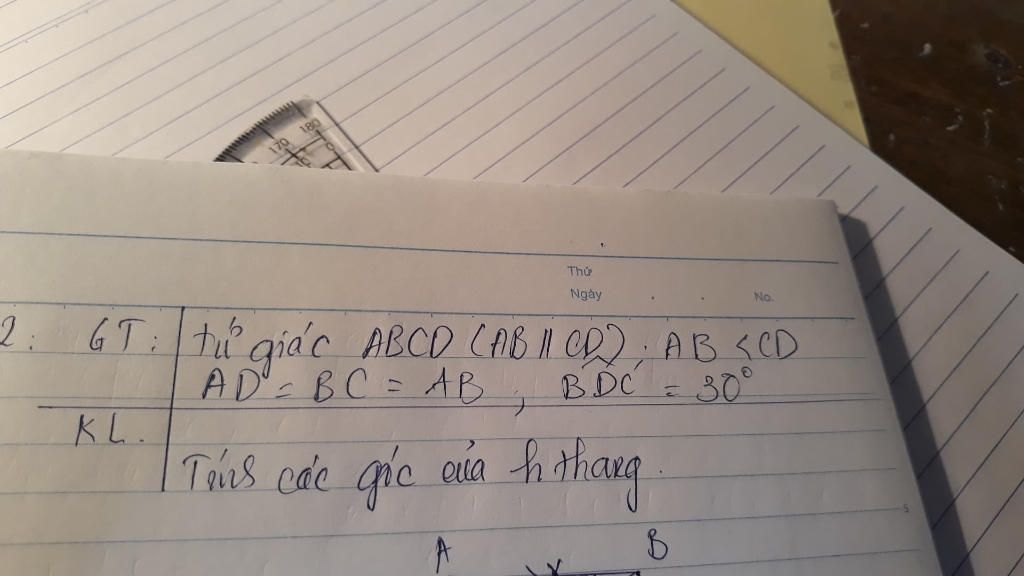 180
170
Thứ
Ngày
No.
2: GT: tứ giác ABCD (AB // CD); AB < CD
AD = BC = AB ; BDC = 30°
KL.
Tính các góc của h thang.
A B
5